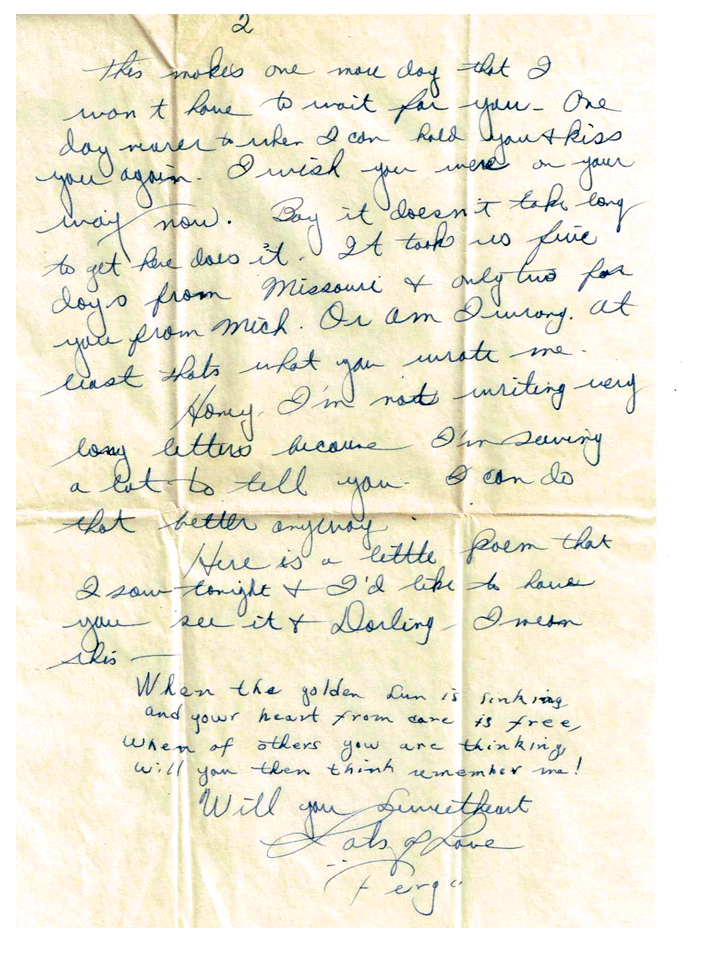 2
this makes one more day that I
won't have to wait for you - One
day nearer to when I can hold you & kiss
you again. I wish you were on your
way now. Boy it doesn't take long
to get here does it. It took us five
days from Missouri & only two for
you from Mich. Or am I wrong. At
least thats what you wrote me.
Honey, I'm not writing very
long letters because I'm saving
a lot to tell you - I can do
that better anyway.
Here is a little poem that
I saw tonight & I'd like to have
you see it & Darling - I mean
this —
When the golden sun is sinking
and your heart from care is free,
When of others you are thinking,
will you then think remember me!
Will you Sweetheart
Lots of Love
"Ferg"